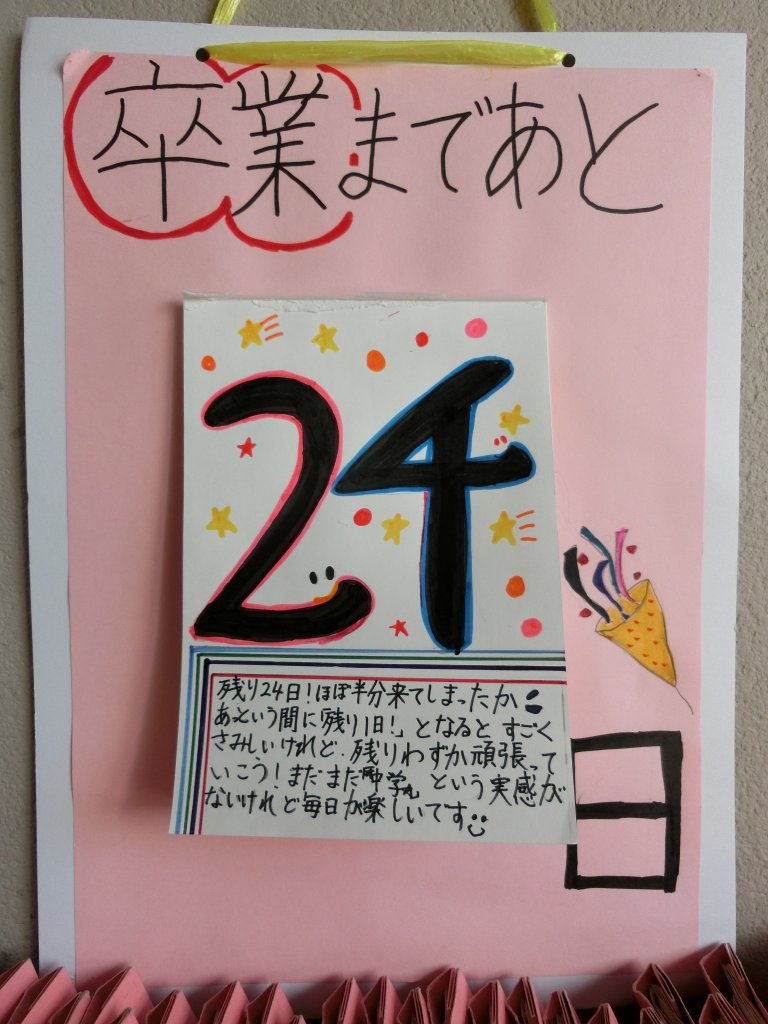 卒業まであと
24
日
残り24日!ほぼ半分来てしまったか
あっという間に「残り1日!」となると すごく
さみしいけれど、残りわずか頑張って
いこう!まだまだ中学生という実感が
ないけれど毎日が楽しいです